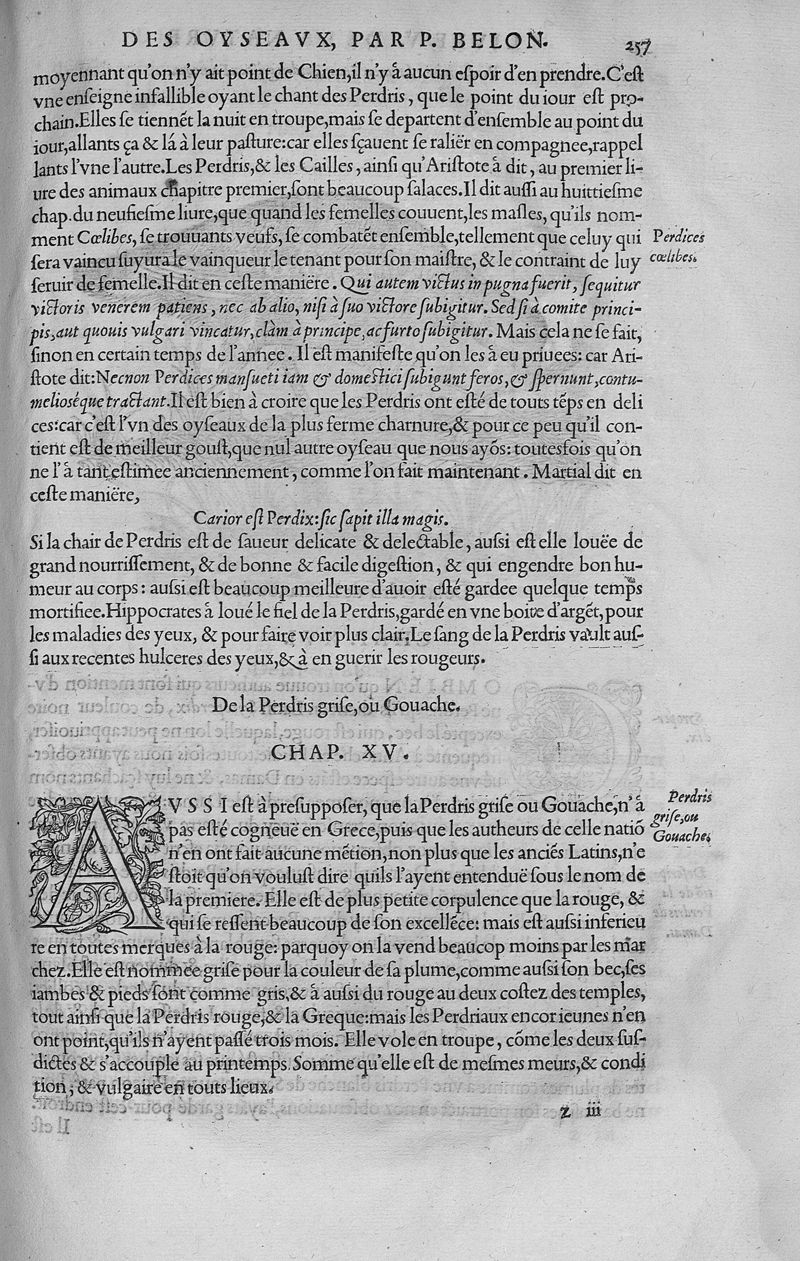 DES OYSEAVX, PAR P. BELON. 257
moyennant qu'on n'y ait point de Chien,il n'y à aucun eſpoir d'en prendre.C'eſt
vne enſeigne infallible oyant le chant des Perdris, que le point du iour eſt pro-
chain.Elles ſe tiennẽt la nuit en troupe,mais ſe departent d'enſemble au point du
iour,allants ça & lá à leur paſture:car elles ſçauent ſe raliër en compagnee,rappel
lants l'vne l'autre.Les Perdris,& les Cailles, ainſi qu'Ariſtote à dit, au premier li-
ure des animaux chapitre premier,ſont beaucoup ſalaces.Il dit auſſi au huittieſme
chap.du neufieſme liure,que quand les femelles couuent,les maſles, qu'ils nom-
ment Cœlibes, ſe trouuants veufs, ſe combatẽt enſemble,tellement que celuy qui
Perdices
ſera vaincu ſuyura le vainqueur le tenant pour ſon maiſtre, & le contraint de luy
cœlibes.
ſeruir de femelle.Il dit en ceſte maniëre. Qui autem victus in pugna fuerit, ſequitur
victoris venerem patiens, nec ab alio, niſi à ſuo victore ſubigitur. Sed ſi à comite princi-
pis,aut quouis vulgari vincatur,clàm à principe,ac furto ſubigitur. Mais cela ne ſe fait,
ſinon en certain temps de l'annee. Il eſt manifeſte qu'on les à eu priuees: car Ari-
ſtote dit:Necnon Perdices manſueti iam & domeſtici ſubigunt feros,& ſpernunt,contu-
melioséque tractant.Il eſt bien à croire que les Perdris ont eſté de touts tẽps en deli
ces:car c'eſt l'vn des oyſeaux de la plus ferme charnure,& pour ce peu qu'il con-
tient eſt de meilleur gouſt,que nul autre oyſeau que nous ayõs: toutesfois qu'on
ne l'à tant eſtimee anciennement, comme l'on fait maintenant. Martial dit en
ceſte maniëre,
Carior eſt Perdix:ſic ſapit illa magis.
Si la chair de Perdris eſt de ſaueur delicate & delectable, auſſi eſt elle louëe de
grand nourriſſement, & de bonne & facile digeſtion, & qui engendre bon hu-
meur au corps: auſſi eſt beaucoup meilleure d'auoir eſté gardee quelque temps
mortifiee.Hippocrates à loué le fiel de la Perdris,gardé en vne boite d'argẽt,pour
les maladies des yeux, & pour faire voir plus clair.Le ſang de la Perdris vault auſ-
ſi aux recentes hulceres des yeux,& à en guerir les rougeurs.
De la Perdris griſe,ou Gouache.
CHAP. XV.
AVSSI eſt à preſuppoſer, que la Perdris griſe ou Gouache,n'à
Perdris
griſe,ou
pas eſté cogneuë en Grece,puis que les autheurs de celle natiõ
Gouache.
n'en ont fait aucune mẽtion,non plus que les anciẽs Latins,n'e
ſtoit qu'on vouluſt dire quils l'ayent entenduë ſous le nom de
la premiere. Elle eſt de plus petite corpulence que la rouge, &
qui ſe reſſent beaucoup de ſon excellẽce: mais eſt auſſi inferieu
re en toutes merques à la rouge: parquoy on la vend beaucop moins par les mar
chez.Elle eſt nommee griſe pour la couleur de ſa plume,comme auſſi ſon bec,ſes
iambes & pieds ſont comme gris,& à auſſi du rouge au deux coſtez des temples,
tout ainſi que la Perdris rouge,& la Greque:mais les Perdriaux encor ieunes n'en
ont point,qu'ils n'ayent paſſé trois mois. Elle vole en troupe, cõme les deux ſuſ-
dictes & s'accouple au printemps. Somme qu'elle eſt de meſmes meurs,& condi
tion, & vulgaire en touts lieux.
z iii